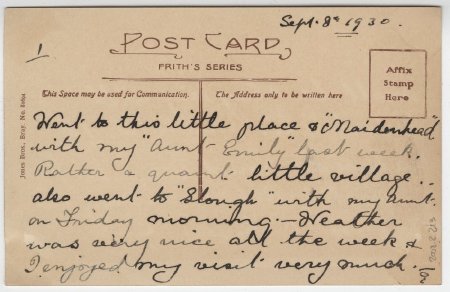 Sept. 8th 1930.
1
POST CARD
FRITH'S SERIES
Affix
Stamp
Here
This Space may be used for Communication.
The Address only to be written here
Went to this little place & "Maidenhead"
with my "Aunt Emily" last week.
Rather a quaint little village..
also went to "Slough" with my Aunt
on Friday morning. - Weather
was very nice all the week &
I enjoyed my visit very much.